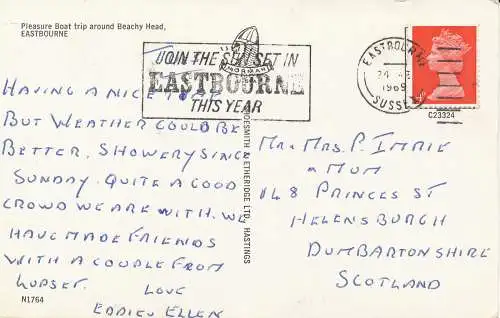 Pleasure Boat trip around Beachy Head,
EASTBOURNE
JOIN THE SUN SET IN
NORMAN
EASTBOURNE
THIS YEAR
EASTBOURNE
24
1969
SUSSEX
C23324
HAVING A NICE TIME
BUT WEATHER COULD BE
BETTER, SHOWERY SINCE
SUNDAY. QUITE A GOOD
CROWD WE ARE WITH. WE
HAVE MADE FRIENDS
WITH A COUPLE FROM
LOVE
EDDIE & ELLEN
N1764
& ETHERIDGE LTD., HASTINGS
MR & MRS P. IMRIE
& MUM
148 PRINCES ST
HELENSBURGH
DUMBARTONSHIRE
SCOTLAND